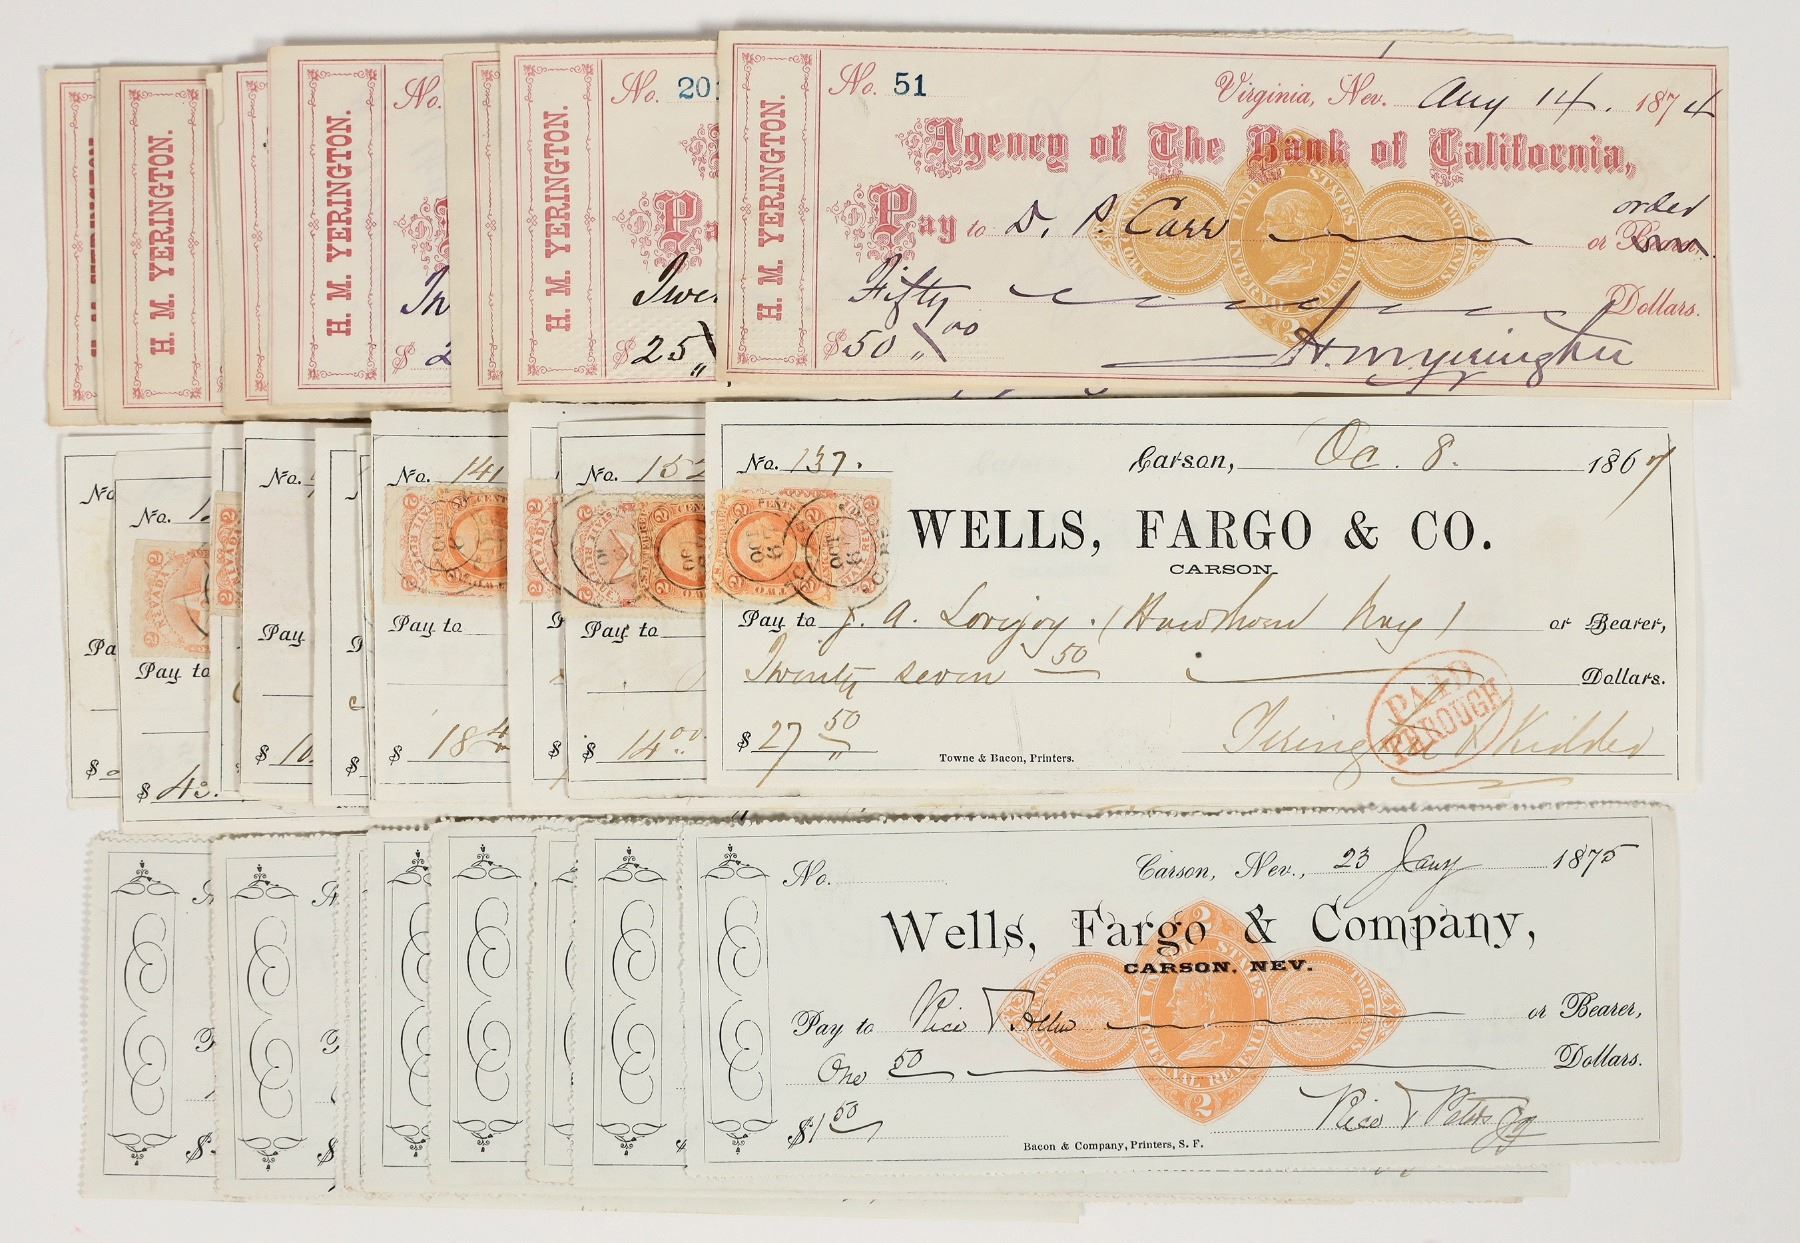 H. M. YERINGTON.
H. M. YERINGTON.
No.
$2
H. M. YERINGTON.
No. 201
Pay
Twe
$25
H. M. YERINGTON.
No. 51
Virginia, Nev. Aug 14. 1874
Agency of The Bank of California,
Pay to D. P. Carr
order
or Bearer,
Fifty
Dollars.
$50 00
H. M. Yerington
UNITED STATES
INTERNAL REVENUE
No.
Pay
$
No. 1
NEVADA
Pay to
$ 43.
No.
Pay
$ 10
$
No. 141
Pay to
$ 18
No. 152
Pay to
$ 14 00
No. 137.
Carson, Oc. 8. 1867
WELLS, FARGO & CO.
CARSON.
Pay to J. A. Lovejoy. (Hawthorn Hay) or Bearer,
Twenty seven 50
Dollars.
$ 27 50
PAID THROUGH
Yerington & Kidder
Towne & Bacon, Printers.
$
$
$
No.
Carson, Nev., 23 Jany 1875
Wells, Fargo & Company,
CARSON, NEV.
Pay to Rice
or Bearer,
One 50
Dollars.
$1 50
UNITED STATES
INTERNAL REVENUE
2
2
Rice & Peters
Bacon & Company, Printers, S. F.